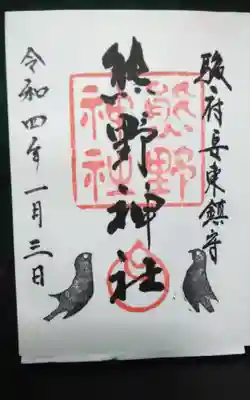 駿府艮東鎮守
熊野神社
熊野
神社
令和四年一月三日